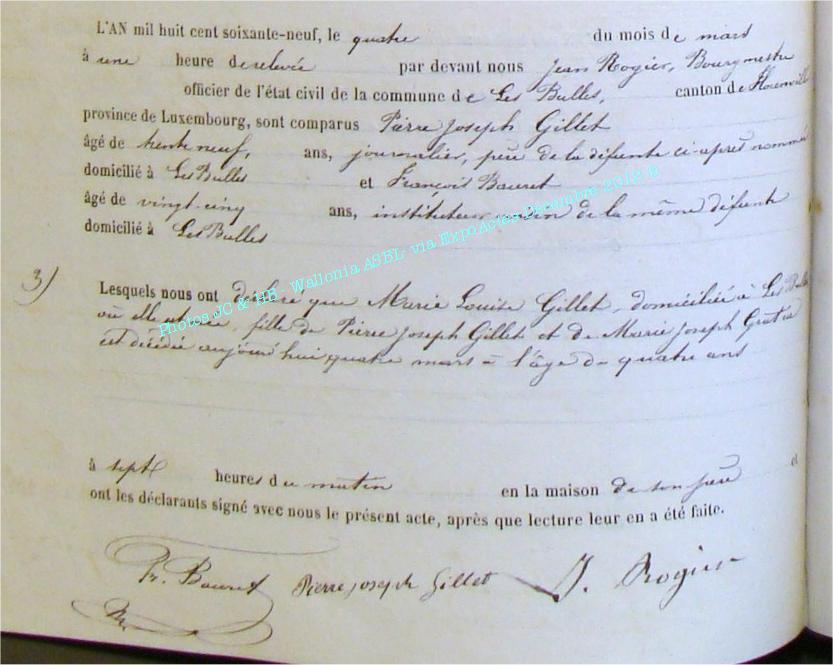 L'AN mil huit cent soixante-neuf, le quatre du mois de mars
à une heure de relevée par devant nous Jean Rogier, Bourgmestre
officier de l'état civil de la commune de Les Bulles, canton de Florenville
province de Luxembourg, sont comparus Pierre Joseph Gillet
âgé de trente neuf, ans, journalier, père de la défunte ci-après nommée
domicilié à Les Bulles et François Bauret
âgé de vingt-cinq ans, instituteur, voisin de la même défunte
domicilié à Les Bulles
3) Lesquels nous ont déclaré que Marie Louise Gillet, domiciliée à Les Bulles
où elle est née, fille de Pierre Joseph Gillet et de Marie Joseph
est décédée aujourd'hui quatre mars à l'âge de quatre ans
à sept heures du matin en la maison de son père et
ont les déclarants signé avec nous le présent acte, après que lecture leur en a été faite.
Fr. Bauret Pierre joseph Gillet J. Rogier
Photos JC & HB - Wallonia ASBL via ExpoActes Décembre 2012 ©